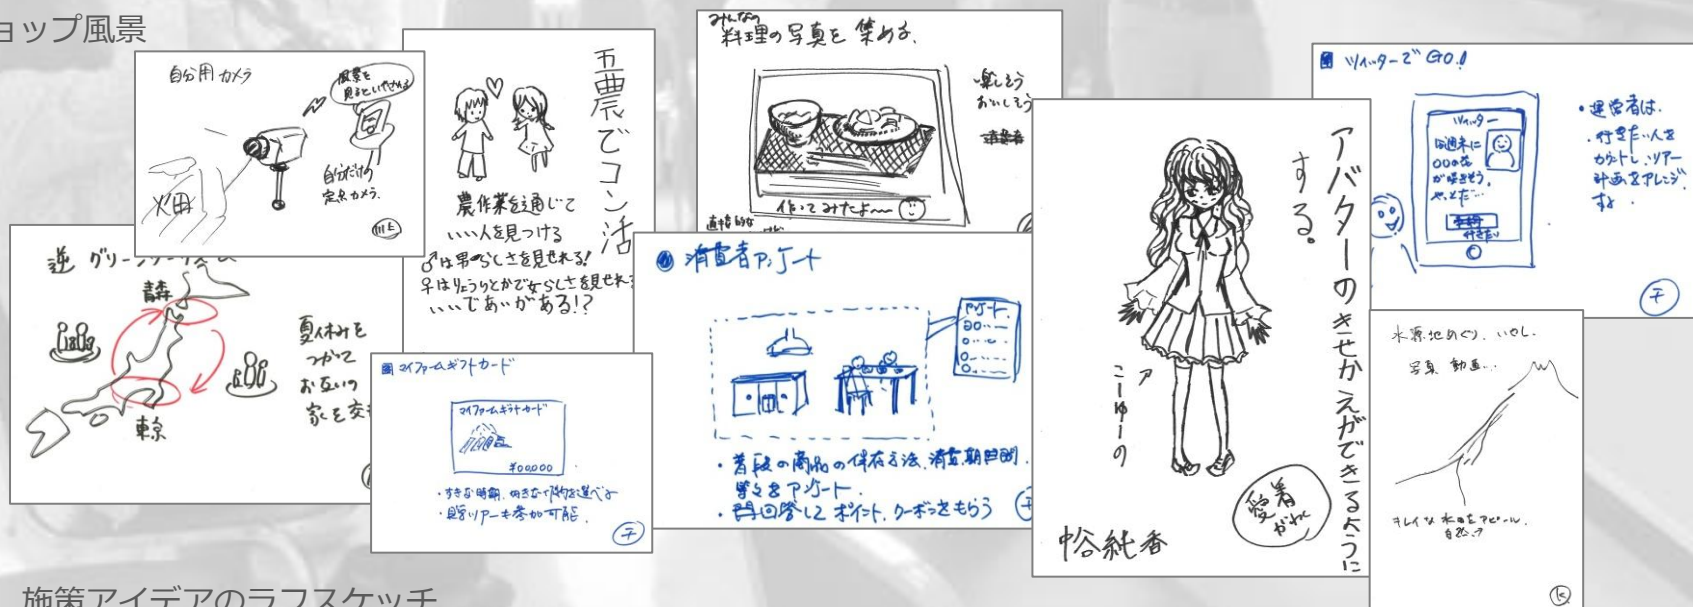 ョップ風景
自分用カメラ
風景を
見るといやされる
自分だけの
定点カメラ.
畑
逆 グリーンツーリズム
青森
東京
夏休みを
つかって
お互いの
家を交
五農でコン活
農作業を通じて
いい人を見つける
♂は男らしさを見せれる!
♀はりょうりとかで女らしさを見せれ
いいであいがある!?
マイファームギフトカード
マイファームギフトカード
¥00,000
・すきな時期、好きな作物を選べる
・見学ツアーも参加可能.
みんなの
料理の写真を集める.
楽しそう
おいしそう
作ってみたよ〜
直接的な
消費者アンケート
アンケート
・普段の商品の保存方法、消費期間
等々をアンケート.
・回答してポイント、クーポンをもらう
アバターのきせかえができるように
する。
こーゆーの
愛着
がわく
ツイッターでGO!
ツイッター
今週末に
○○の花
が咲きそう。
行きたい
・運営者は.
・行きたい人を
カウントし、ツアー
計画をアレンジ
する.
水源地めぐり、いやし.
写真 動画...
キレイな水田をアピール.
自然?
K
施策アイデアのラフスケッチ